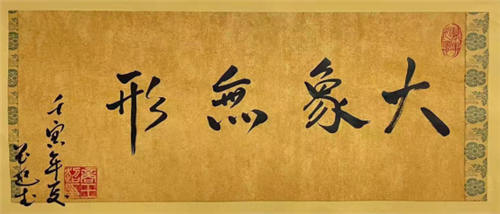 大象無形
壬寅年夏